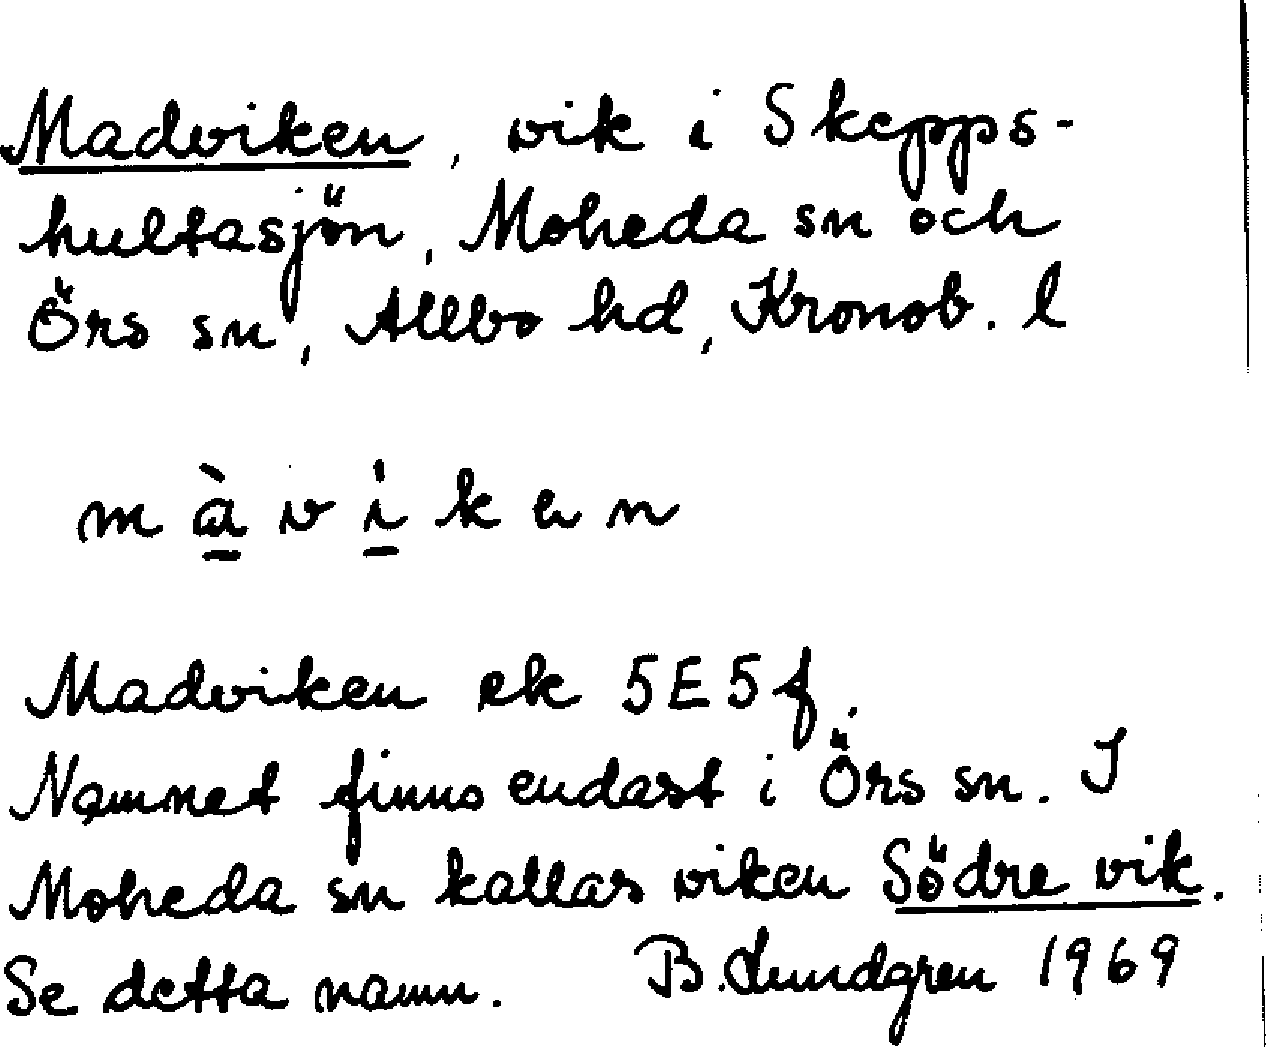 Madviken, vik i Skepps-
hultasjön, Moheda sn och
Örs sn, Allbo hd, Kronob. l
m à v i̇ k e n
Madviken ek 5E5f.
Namnet finns endast i Örs sn. I
Moheda sn kallas viken Södre vik.
Se detta namn. B. Lundgren 1969